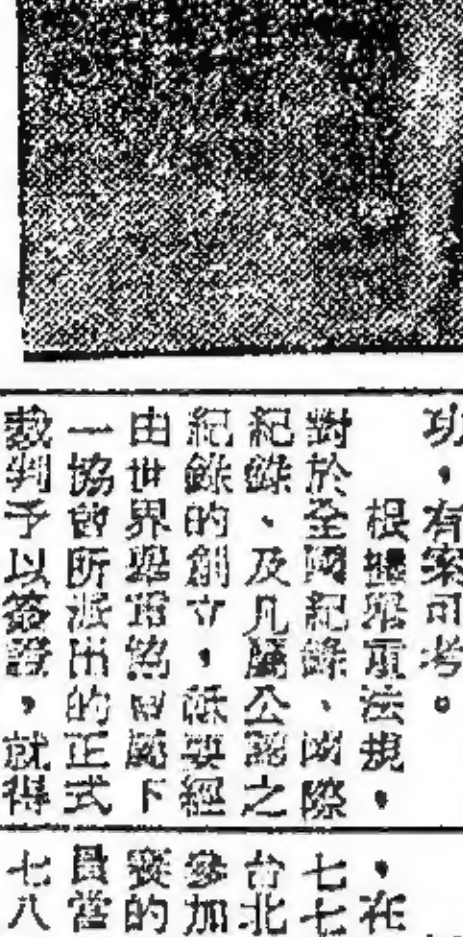 功，有案可考。
根據舉重法規，
對於全國紀錄、國際
紀錄、及凡屬公認之
紀錄的創立，祇要經
由世界舉重協會屬下
一協會所派出的正式
裁判予以簽證，就得
，在
七七
台北
參加
賽的
員當
七八